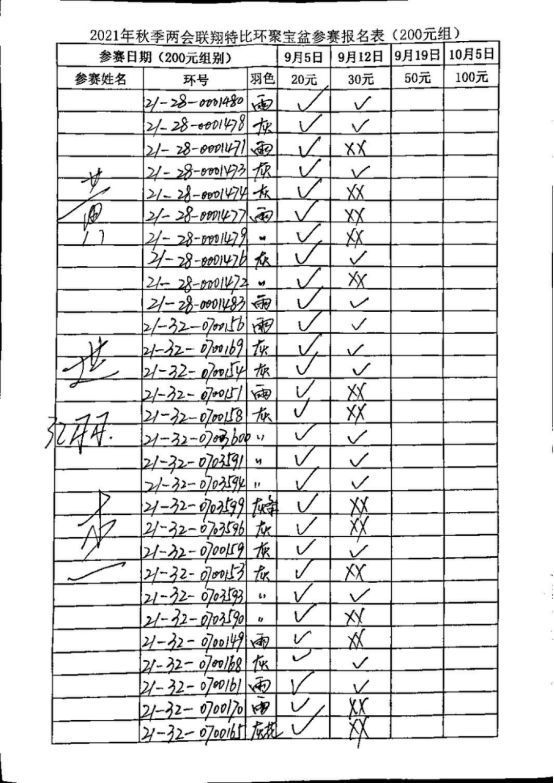 2021年秋季两会联翔特比环聚宝盆参赛报名表（200元组）
参赛日期（200元组别） 9月5日 9月12日 9月19日 10月5日
参赛姓名 环号 羽色 20元 30元 50元 100元
21-28-0001480 雨 ✓ ✓
21-28-0001478 灰 ✓ ✓
21-28-0001471 雨 ✓ XX
21-28-0001473 灰 ✓ ✓
21-28-0001474 灰 ✓ XX
21-28-0001477 雨 ✓ XX
21-28-0001479 〃 ✓ XX
21-28-0001476 灰 ✓ ✓
21-28-0001472 〃 ✓ XX
21-28-0001483 雨 ✓ ✓
21-32-0700156 雨 ✓ ✓
21-32-0700169 灰 ✓ ✓
21-32-0700154 灰 ✓ ✓
21-32-0700151 雨 ✓ XX
21-32-0700158 灰 ✓ XX
21-32-0703600 〃 ✓ ✓
21-32-0703591 〃 ✓ ✓
21-32-0703594 〃 ✓ ✓
21-32-0703599 ✓ XX
21-32-0703596 灰 ✓ XX
21-32-0700159 灰 ✓ ✓
21-32-0700153 灰 ✓ XX
21-32-0703593 〃 ✓ ✓
21-32-0703590 〃 ✓ XX
21-32-0700149 雨 ✓ XX
21-32-0700168 灰 ✓ ✓
21-32-0700161 雨 ✓ ✓
21-32-0700170 雨 ✓ XX
21-32-0700165 灰花 ✓ XX